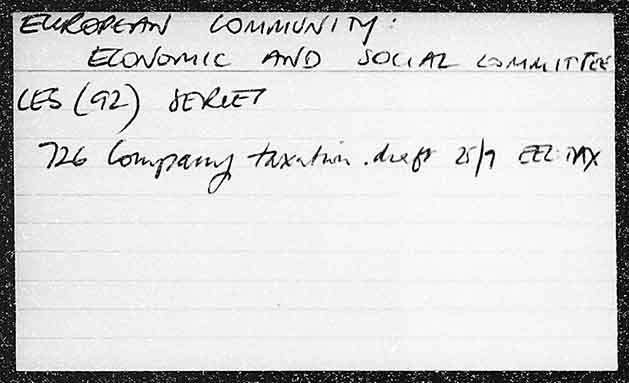 EUROPEAN COMMUNITY:
ECONOMIC AND SOCIAL COMMITTEE
CES (92) SERIES
726 Company taxation. draft 25/9 EEC: TAX